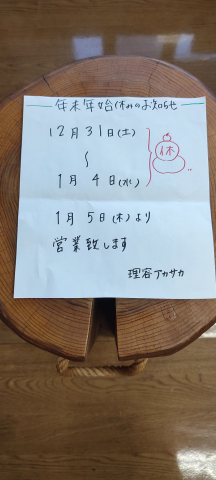 年末年始休みのお知らせ
12月31日(土)
〜
1月4日(水)
休
1月5日(木)より
営業致します
理容アカサカ